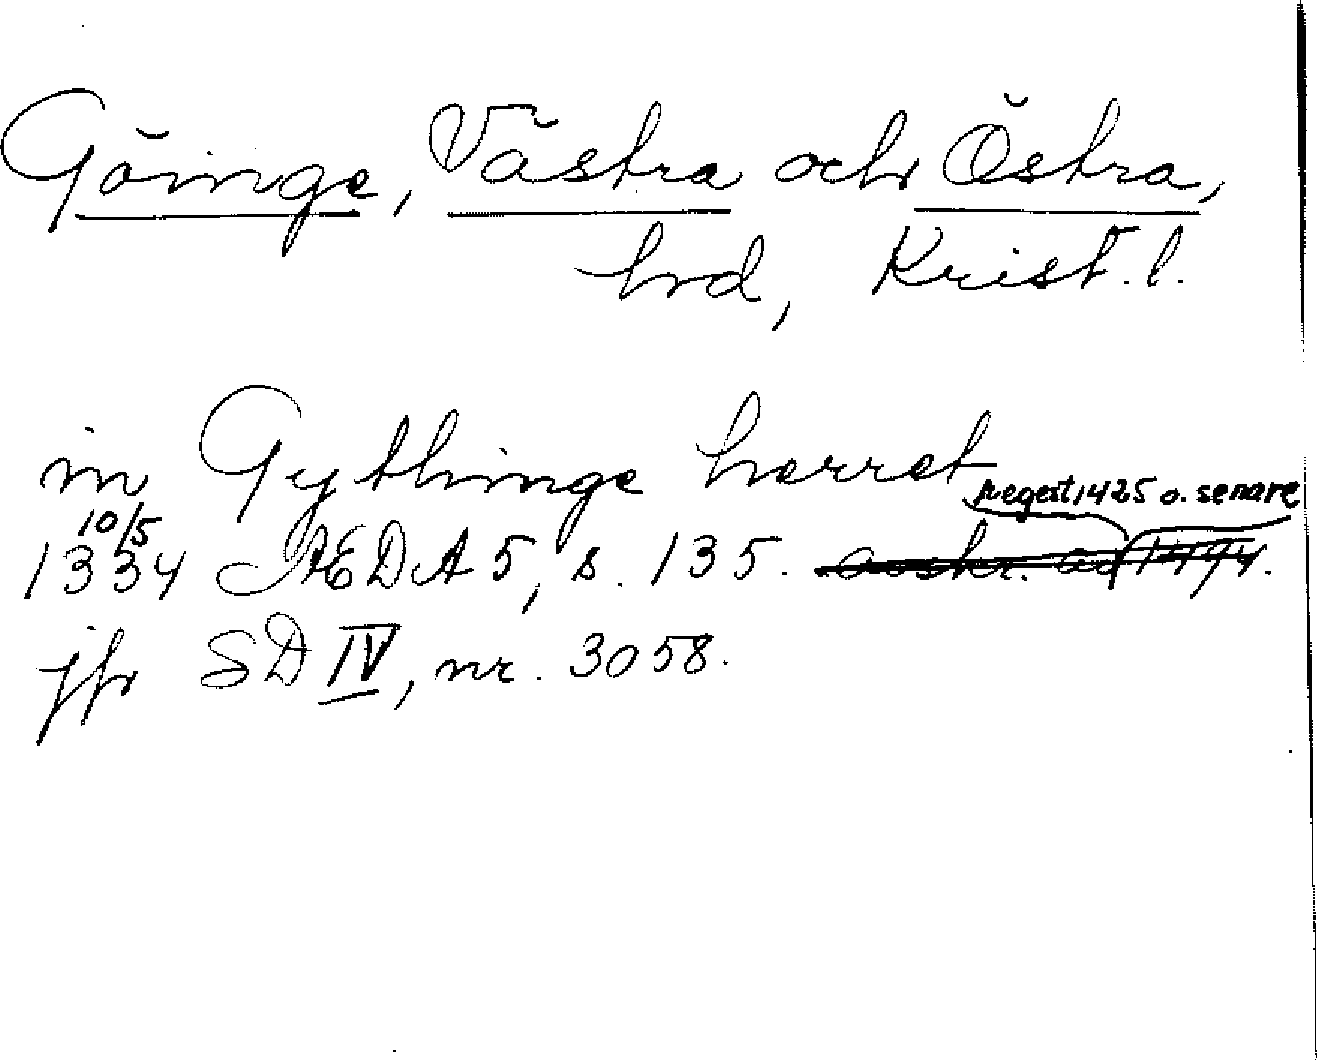 Göinge, Västra och Östra,
hrd, Krist. l.
in Gythinge herret
regest 1425 o. senare
10/5
1334 ÆDA 5, s. 135. avskr. av 1494.
jfr SD IV, nr. 3058.